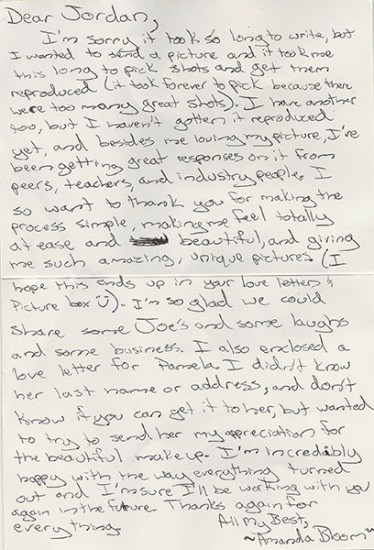 Dear Jordan,
I'm sorry it took so long to write, but
I wanted to send a picture and it took me
this long to pick shots and get them
reproduced (it took forever to pick because there
were too many great shots). I have another
too, but I haven't gotten it reproduced
yet, and besides me loving my picture, I've
been getting great responses on it from
peers, teachers, and industry people. I
so want to thank you for making the
process simple, making me feel totally
at ease and beautiful, and giving
me such amazing, unique pictures. (I
hope this ends up in your love letters &
Picture box Ü). I'm so glad we could
share some Joe's and some laughs
and some business. I also enclosed a
love letter for Pamela. I didn't know
her last name or address, and don't
know if you can get it to her, but wanted
to try to send her my appreciation for
the beautiful makeup. I'm incredibly
happy with the way everything turned
out and I'm sure I'll be working with you
again in the future. Thanks again for
everything.
All My Best,
~Amanda Bloom~